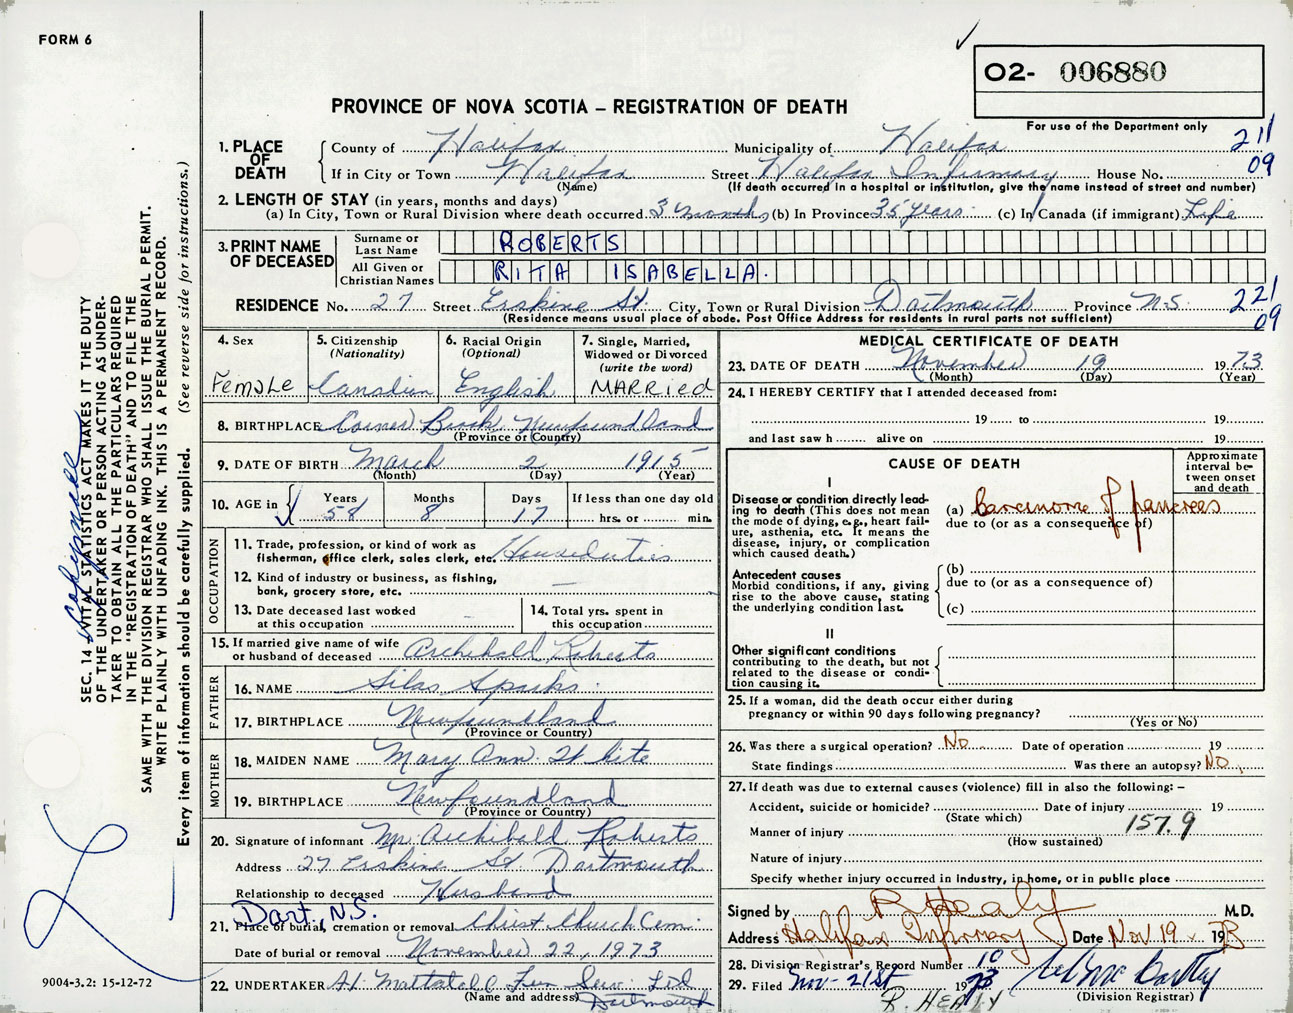 FORM 6
O2- 006880
PROVINCE OF NOVA SCOTIA – REGISTRATION OF DEATH
For use of the Department only
211
09
1. PLACE OF DEATH
County of Halifax Municipality of Halifax
If in City or Town Halifax Street Halifax Infirmary House No.
(Name) (If death occurred in a hospital or institution, give the name instead of street and number)
2. LENGTH OF STAY (in years, months and days)
(a) In City, Town or Rural Division where death occurred 3 months (b) In Province 35 years (c) In Canada (if immigrant) Life
3. PRINT NAME OF DECEASED
Surname or Last Name ROBERTS
All Given or Christian Names RITA ISABELLA.
RESIDENCE No. 27 Street Erskine St. City, Town or Rural Division Dartmouth Province N.S.
(Residence means usual place of abode. Post Office Address for residents in rural parts not sufficient)
221
09
4. Sex
Female
5. Citizenship
(Nationality)
Canadian
6. Racial Origin
(Optional)
English
7. Single, Married,
Widowed or Divorced
(write the word)
MARRIED
8. BIRTHPLACE Corner Brook Newfoundland
(Province or Country)
9. DATE OF BIRTH March 2 1915
(Month) (Day) (Year)
10. AGE in
Years Months Days If less than one day old
58 8 17 hrs. or min.
OCCUPATION
11. Trade, profession, or kind of work as
fisherman, office clerk, sales clerk, etc. Houseduties
12. Kind of industry or business, as fishing,
bank, grocery store, etc. —
13. Date deceased last worked
at this occupation
14. Total yrs. spent in
this occupation
15. If married give name of wife
or husband of deceased Archibald Roberts
FATHER
16. NAME Silas Sparks
17. BIRTHPLACE Newfoundland
(Province or Country)
MOTHER
18. MAIDEN NAME Mary Ann White
19. BIRTHPLACE Newfoundland
(Province or Country)
20. Signature of informant Mr. Archibald Roberts
Address 27 Erskine St. Dartmouth
Relationship to deceased Husband
Dart., N.S.
21. Place of burial, cremation or removal Christ Church Cem.
Date of burial or removal November 22, 1973
22. UNDERTAKER Fun Serv. Ltd
(Name and address) Dartmouth
MEDICAL CERTIFICATE OF DEATH
23. DATE OF DEATH November 19 1973
(Month) (Day) (Year)
24. I HEREBY CERTIFY that I attended deceased from:
19 to 19
and last saw h alive on 19
CAUSE OF DEATH
Approximate
interval be-
tween onset
and death
I
Disease or condition directly lead-
ing to death (This does not mean
the mode of dying, e.g., heart fail-
ure, asthenia, etc. It means the
disease, injury, or complication
which caused death.)
(a) Carcinoma of pancreas
due to (or as a consequence of)
Antecedent causes
Morbid conditions, if any, giving
rise to the above cause, stating
the underlying condition last.
(b)
due to (or as a consequence of)
(c)
II
Other significant conditions
contributing to the death, but not
related to the disease or condi-
tion causing it.
25. If a woman, did the death occur either during
pregnancy or within 90 days following pregnancy?
(Yes or No)
26. Was there a surgical operation? No Date of operation 19
State findings Was there an autopsy? No
27. If death was due to external causes (violence) fill in also the following: –
Accident, suicide or homicide? Date of injury 19
(State which)
157.9
Manner of injury
(How sustained)
Nature of injury
Specify whether injury occurred in industry, in home, or in public place
Signed by R Healy M.D.
Address Halifax Infirmary Date Nov 19 1973
28. Division Registrar's Record Number 10
29. Filed Nov- 21st 1973
(Division Registrar)
R. HEALY
SEC. 14 VITAL STATISTICS ACT MAKES IT THE DUTY
OF THE UNDERTAKER OR PERSON ACTING AS UNDER-
TAKER TO OBTAIN ALL THE PARTICULARS REQUIRED
IN THE "REGISTRATION OF DEATH" AND TO FILE THE
SAME WITH THE DIVISION REGISTRAR WHO SHALL ISSUE THE BURIAL PERMIT.
WRITE PLAINLY WITH UNFADING INK. THIS IS A PERMANENT RECORD.
Every item of information should be carefully supplied. (See reverse side for instructions.)
9004-3.2: 15-12-72